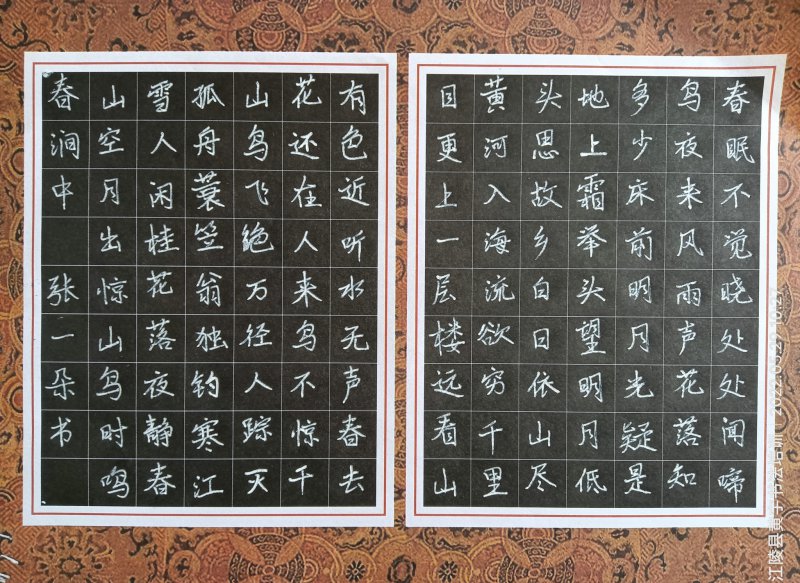 春眠不觉晓处处闻啼
鸟夜来风雨声花落知
多少床前明月光疑是
地上霜举头望明月低
头思故乡白日依山尽
黄河入海流欲穷千里
目更上一层楼远看山
有色近听水无声春去
花还在人来鸟不惊千
山鸟飞绝万径人踪灭
孤舟蓑笠翁独钓寒江
雪人闲桂花落夜静春
山空月出惊山鸟时鸣
春涧中 张一朵书
江陵县黄子书法培训 10:27